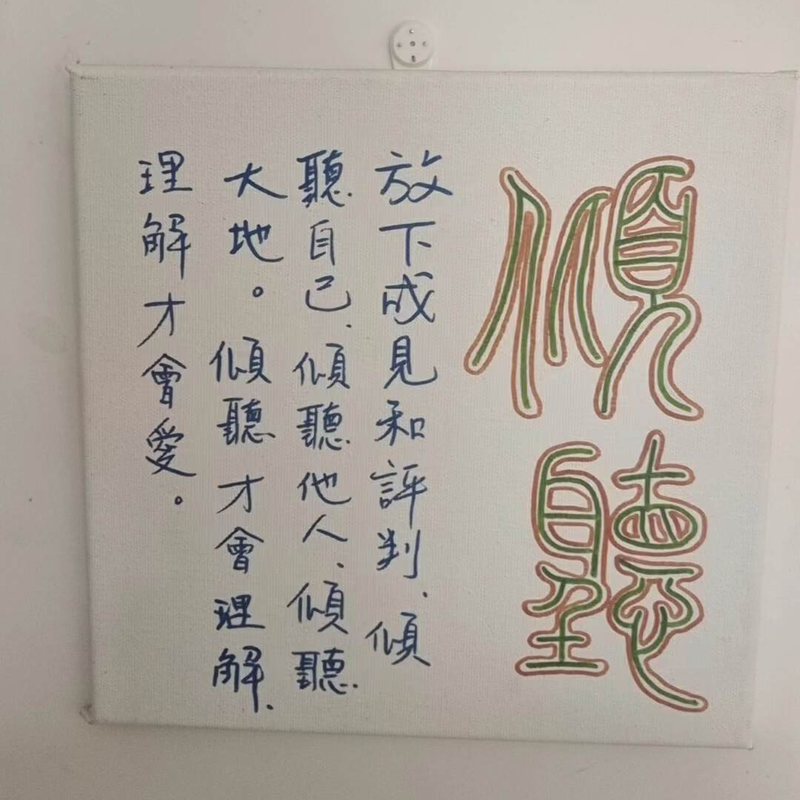 傾聽
放下成見和評判、傾
聽自己、傾聽他人、傾聽
大地。傾聽才會理解、
理解才會愛。